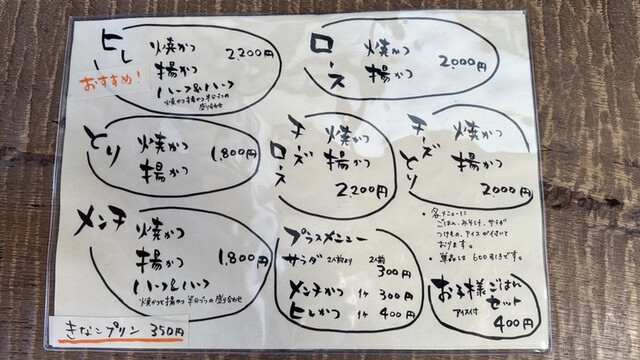 ヒレ
おすすめ!
焼かつ
揚かつ
ハーフ&ハーフ
2,200円
焼かつ揚かつ半分づつの
盛り合わせ
ロース
焼かつ
揚かつ
2,000円
とり
焼かつ
揚かつ
1,800円
チーズロース
焼かつ
揚かつ
2,200円
チーズとり
焼かつ
揚かつ
2,000円
メンチ
焼かつ
揚かつ
ハーフ&ハーフ
1,800円
焼かつと揚かつ半分づつの盛り合わせ
プラスメニュー
サラダ 2人前より 2人前
300円
メンチかつ 1ヶ 300円
ヒレかつ 1ヶ 400円
• 各メニューに
ごはん、みそ汁、サラダ
つけもの、アイスが付いて
おります。
• 単品は 600引きです。
お子様ごはん
セット
アイス付
400円
きなこプリン 350円